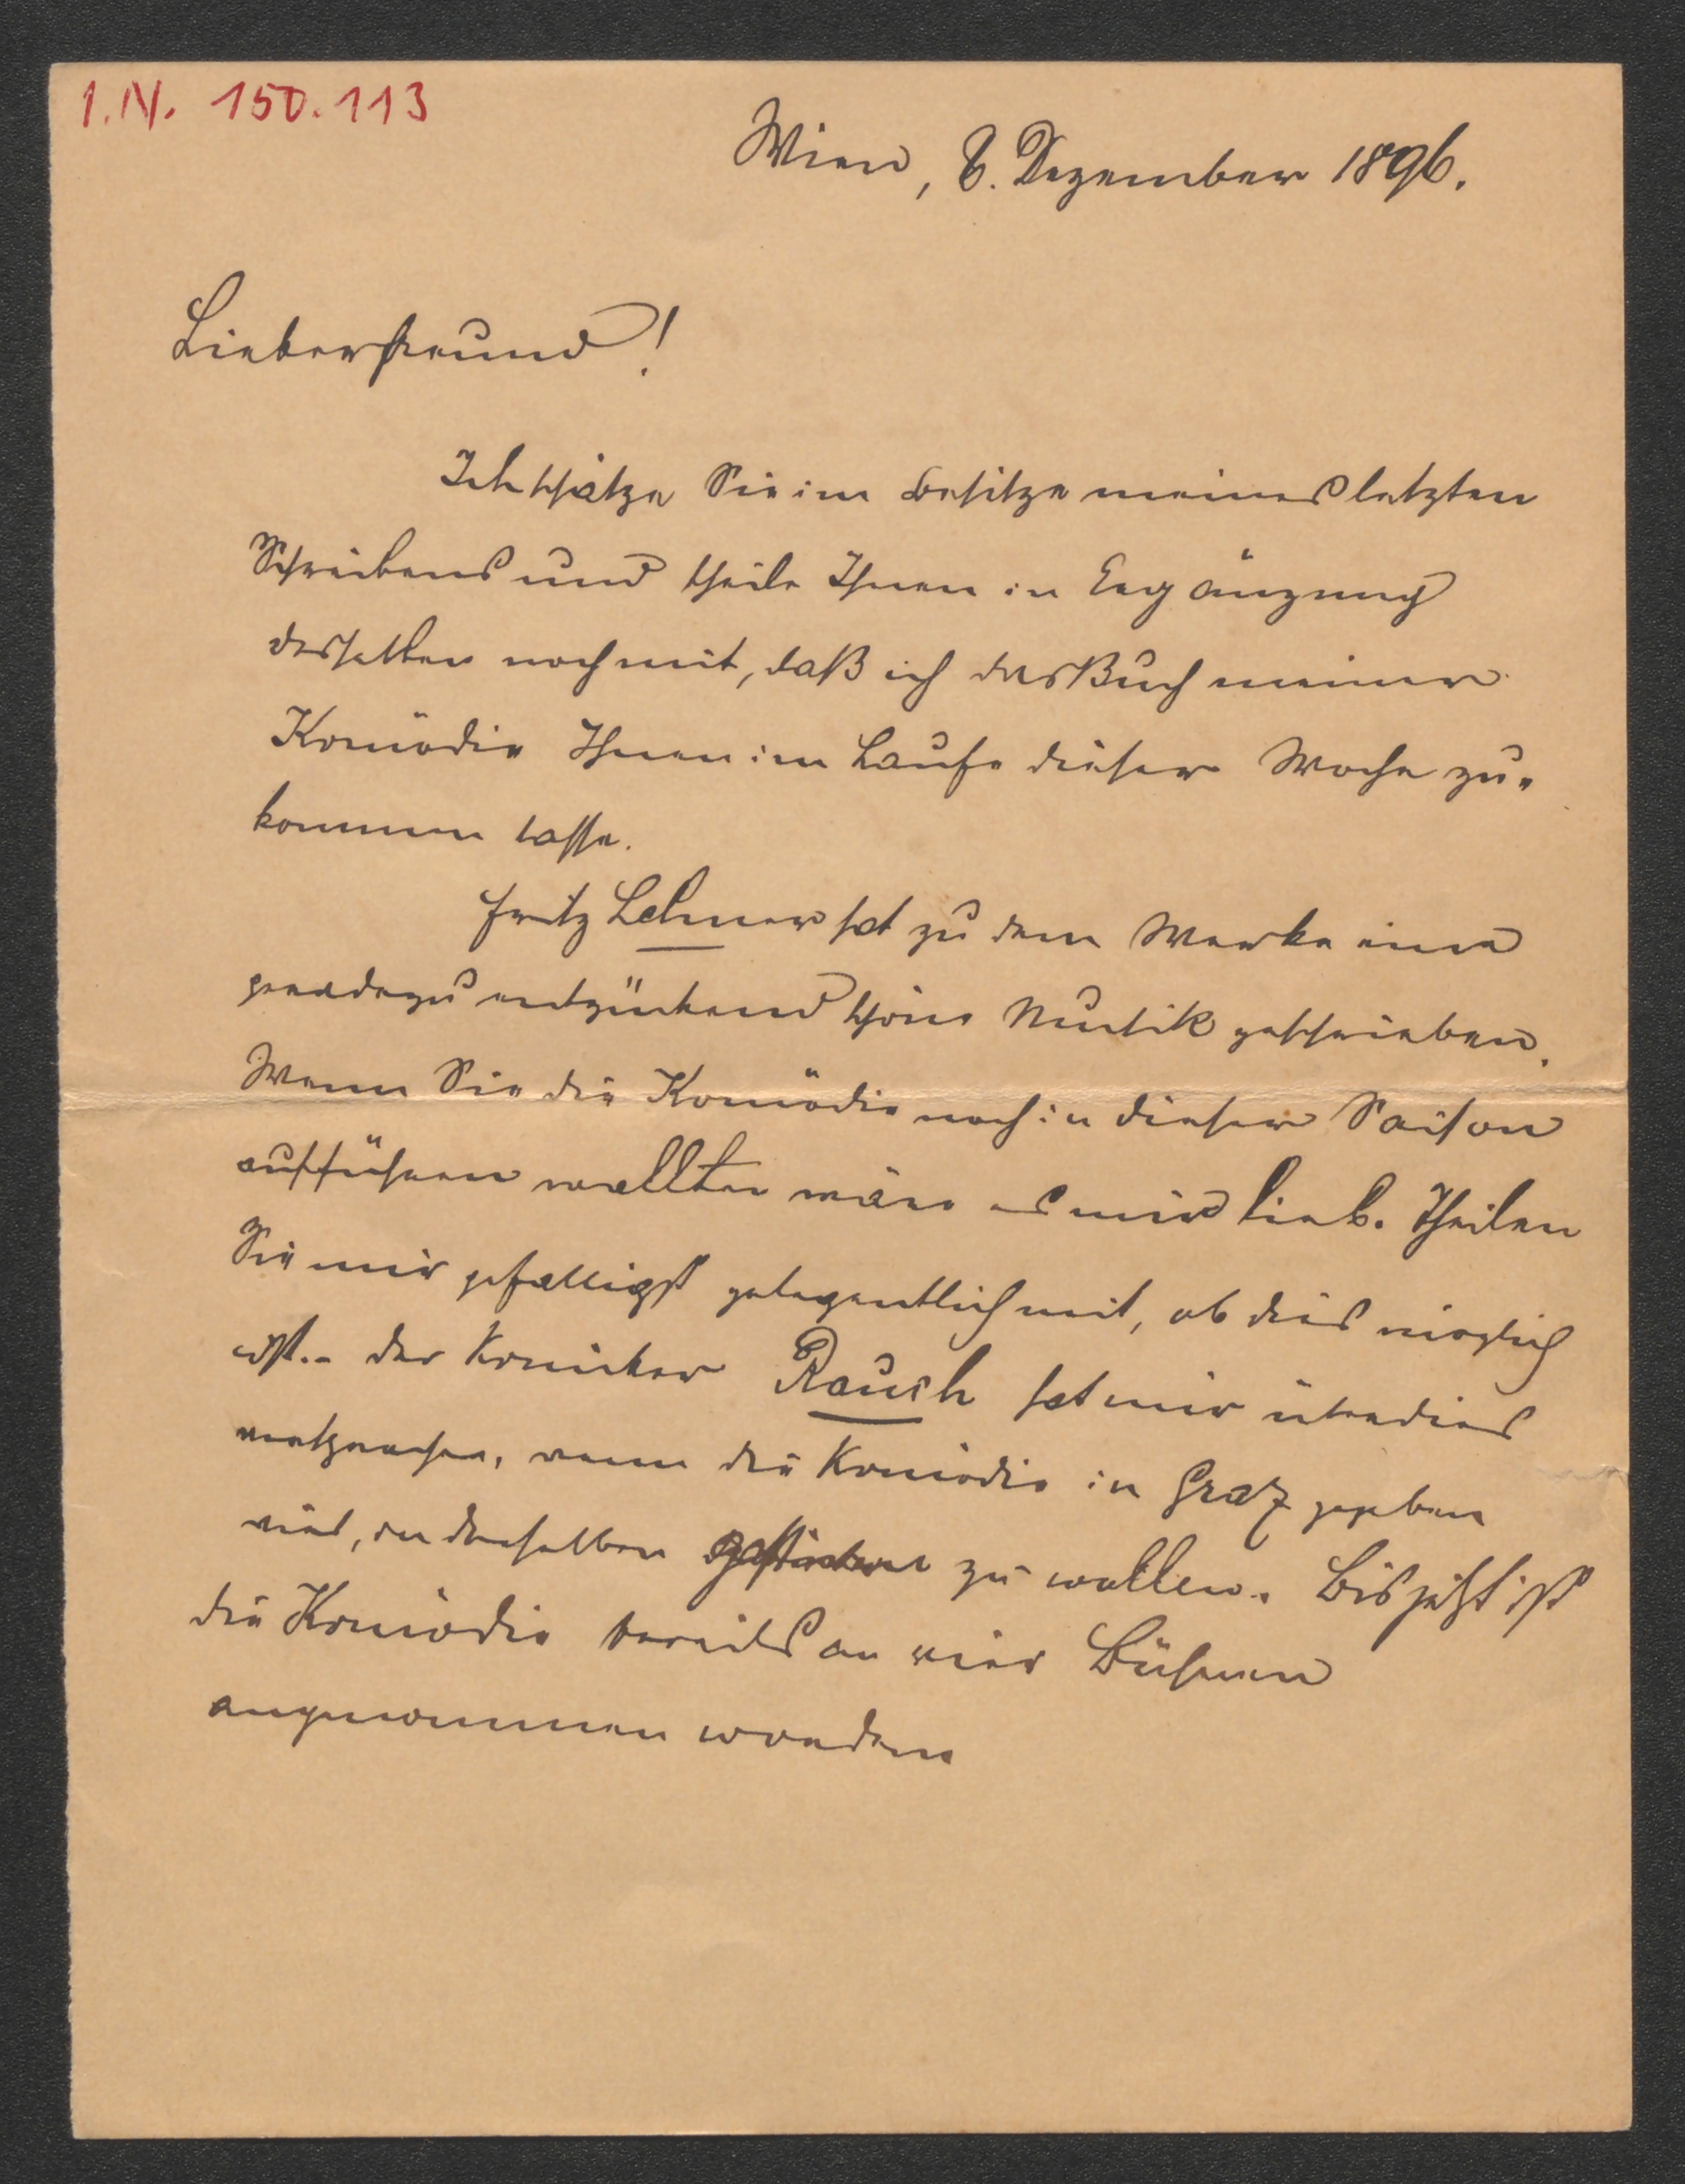 I.N. 150.113
Wien, 8. Dezember 1896.
Lieber Freund!
Ich schätze Sie im Besitze meines letzten
Schreibens und theile Ihnen in Ergänzung
desselben noch mit, daß ich das Buch meiner
Komödie Ihnen im Laufe dieser Woche zu-
kommen lasse.
Fritz Lehner hat zu dem Werke eine
geradezu entzückend schöne Musik geschrieben.
Wenn Sie die Komödie noch in dieser Saison
aufführen wollten wäre es mir lieb. Theilen
Sie mir gefälligst gelegentlich mit, ob dies möglich
ist.- Der Komiker Rauch hat mir überdies
versprochen, wenn die Komödie in Graz gegeben
wird, in derselben gastiren zu wollen. Bis jetzt ist
die Komödie bereits an vier Bühnen
angenommen worden